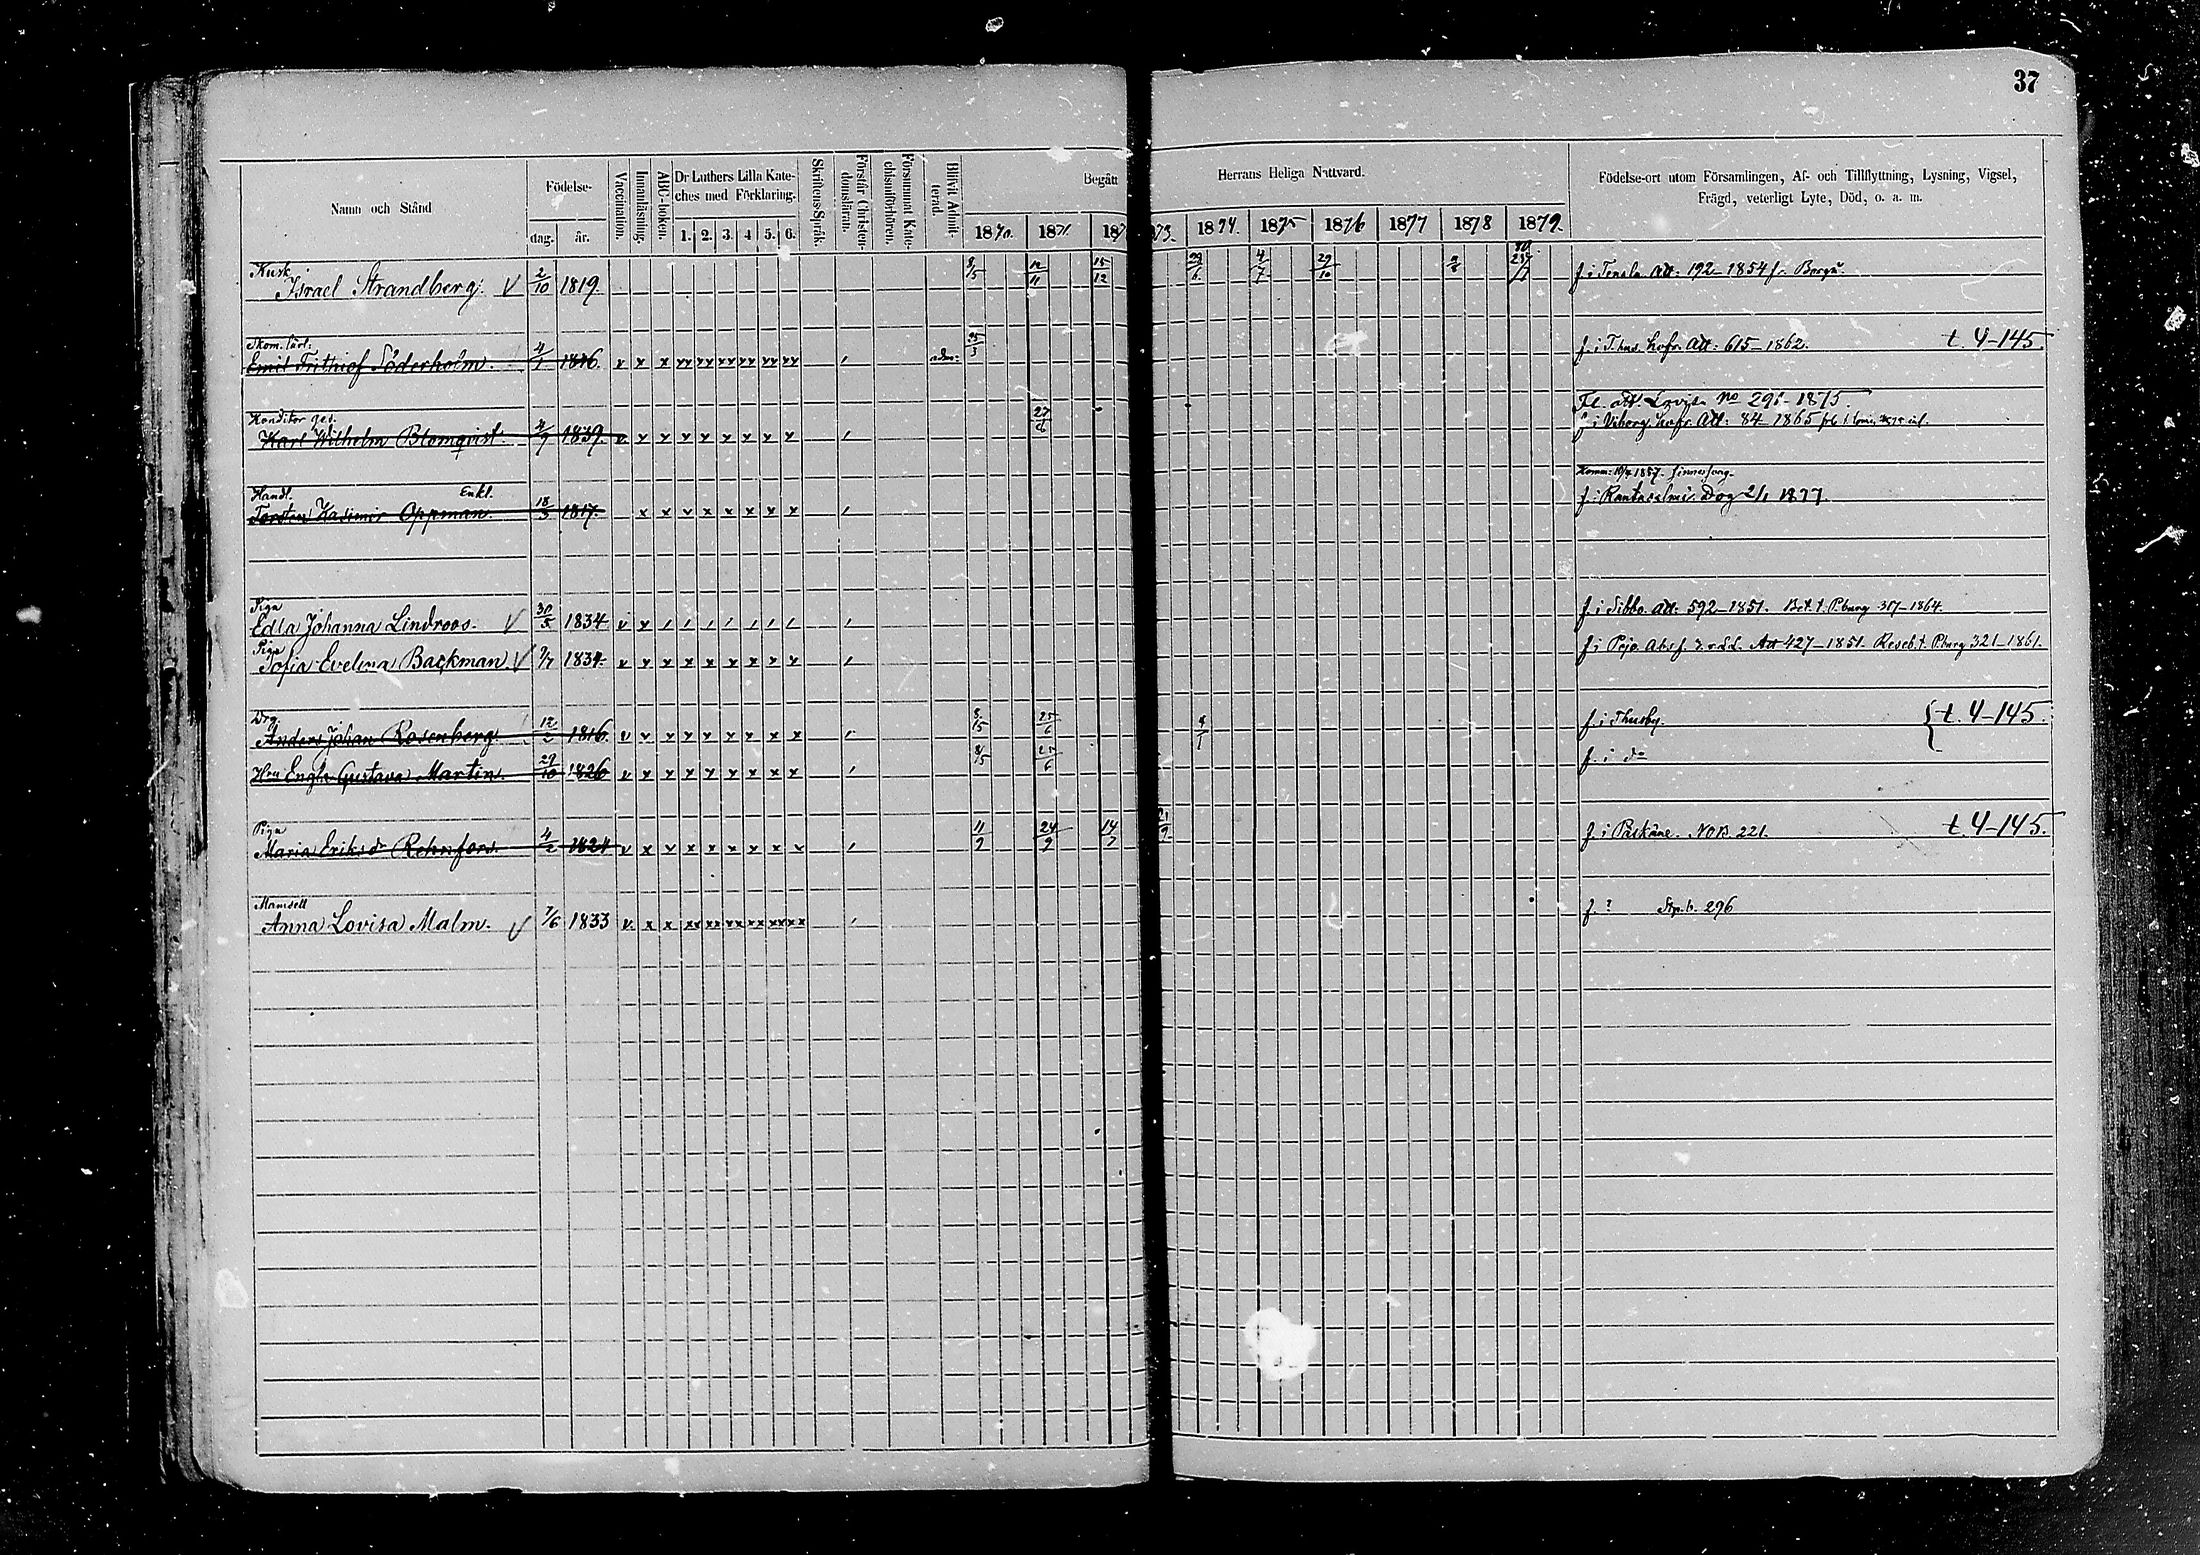 37
Namn och Stånd
Födelse-
dag. år.
Vaccination.
Innanläsning.
ABC-boken.
Dr Luthers Lilla Kate-
ches med Förklaring.
1. 2. 3. 4 5. 6.
Skriftens Språk.
Förstår Christen-
domsläran.
Försummat Kate-
chismiförhören.
Blifvit Admit-
terad.
Begått Herrans Heliga Nattvard.
1870. 1871 187 73. 1874. 1875 1876 1877 1878 1879.
Födelse-ort utom Församlingen, Af- och Tillflyttning, Lysning, Vigsel,
Frägd, veterligt Lyte, Död, o. a. m.
Kusk
Israel Strandberg. V 2/10 1819 8/5 12/11 15/12 29/6 4/7 29/10 f. i Tenala Att: 192–1854 fr. Borgå.
Skom. lärl:
Emil Frithiof Söderholm. 4/1 1846. v x x xx xx xx xx xx xx adm: 25/3 f. i T.hus. hofr. Att: 615–1862. t. 4–145.
Fl. att. Lovisa No 291–1875.
Konditor ges.
Karl Wilhelm Blomqvist. 4/9 1839. v x x x x x x x x 27/6 f i Viborg. hofr. Att: 84–1865
Handl. Enkl.
Torsten Kasimir Oppman. 18/3 1817. x x x x x x x x f. i Rantasalmi. Dog 2/1 1877.
Piga
Edla Johanna Lindroos. V 30/5 1834 v x / / / / / / / f. i Sibbo. Att: 592–1851. Bet. t. P.burg 317–1864.
Piga
Sofia Evelina Backman V 9/7 1834. v x x x x x x x x f. i Pojo. Att 427–1851. Reseb. t. P.burg 321–1861.
Drg.
Anders Johan Rosenberg 12/2 1816. v x x x x x x x x 8/15 25/6 4/1 f. i Thusby. { t. 4–145.
Hru Engla Gustava Martin. 29/10 1826 v x x x x x x x x 8/15 25/6 f. i do
Piga
Maria Eriksdr Rehnfors. 4/2 1824 v x x x x x x x x 11/9 24/9 14/7 21/9. f. i Päskäne. No B. 221. t. 4–145.
Mamsell
Anna Lovisa Malm. V 7/6 1833 v. x x xx xx xx xx xx xx f. ? 296